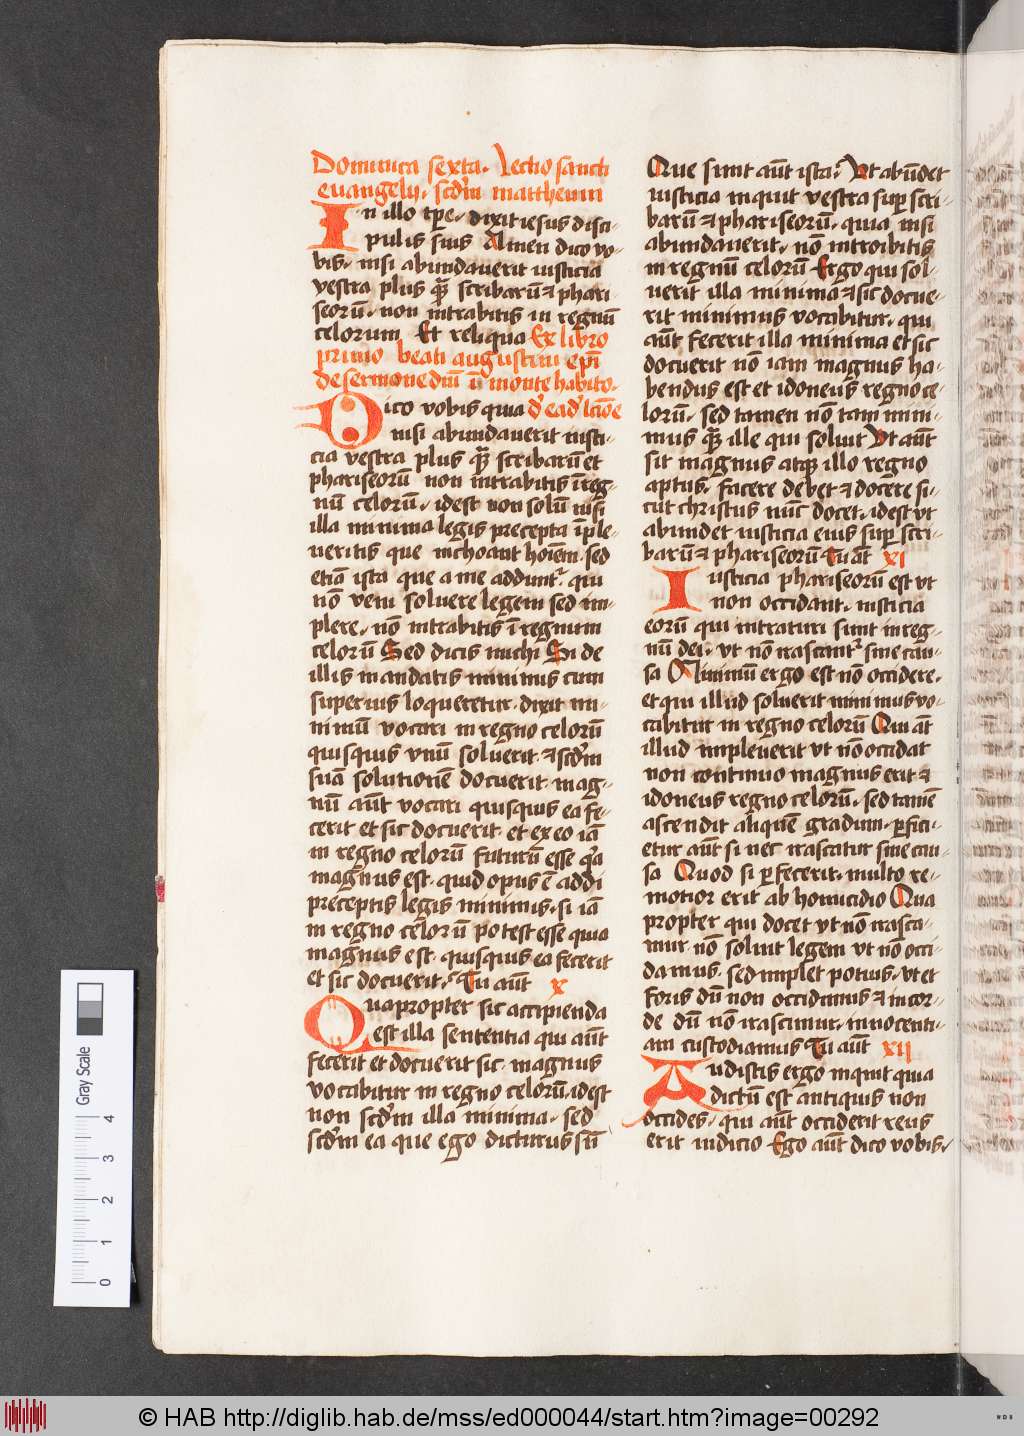 Dominica sexta. Lectio sancti
euangelij. scd̄m mattheum
In illo tp̄e. dixit iesus disci-
pulis suis Amen dico vo-
bis. nisi abundauerit iusticia
vestra plus qm̄ scribarū ⁊ phari-
seorū. non intrabitis in regnū
celorum Et reliqua Ex libro
primo beati augustini ep̄i
de sermone dn̄i ī monte habito.
Dico vobis quia d̄ ead̄ lcīoe
nisi abundauerit iusti-
cia vestra plus qm̄ scribarū et
phariseorū non intrabitis ī reg-
nū celorū. idest non solū nisi
illa minima legis precepta īple-
ueritis que inchoant hoīem. sed
etiā ista que a me addunt᷑. qui
nō veni soluere legem sed im-
plere. nō intrabitis ī regnum
celorū Sed dicis michi Si de
illis mandatis minimis cum
superius loqueretur. dixit mi-
nimū vocari in regno celorū
quisquis vnū soluerit. ⁊ scd̄m
suā solutionē docuerit. mag-
nū aūt vocari quisquis ea fe-
cerit et sic docuerit. et ex eo iā
in regno celorū futurū esse q̄a
magnus est. quid opus ē addi
preceptis legis minimis. si iā
in regno celorū potest esse quia
magnus est. quisquis ea fecerit
et sic docuerit. Tu aūt x
Quapropter sic accipienda
est illa sententia qui aūt
fecerit et docuerit sic. magnus
vocabitur in regno celorū. idest
non scd̄m illa minima. sed
scd̄m ea que ego dicturus sū
Que sunt aūt ista. Vt abūdet
iusticia inquit vestra sup̄ scri-
barū ⁊ phariseorū. quia nisi
abundauerit. nō introibitis
in regnū celorū Ergo qui sol-
uerit illa minima ⁊ sic docue-
rit minimus vocabitur. qui
aūt fecerit illa minima et sic
docuerit nō iam magnus ha-
bendus est et idoneus regno ce-
lorū. sed tamen nō tam mini-
mus qm̄ ille qui soluit Vt aūt
sit magnus atqꝫ illo regno
aptus. facere debet ⁊ docere si-
cut christus nūc docet. idest vt
abundet iusticia eius sup̄ scri-
barū ⁊ phariseorū Tu āt xi
Iusticia phariseorū est vt
non occidant. iusticia
eorū qui intraturi sunt in reg-
nū dei. vt nō irascant᷑ sine cau-
sa Minimū ergo est nō occidere.
et qui illud soluerit minimus vo-
cabitur in regno celorū Qui āt
illud impleuerit vt nō occidat
non continuo magnus erit ⁊
idoneus regno celorū. sed tamē
ascendit aliquē gradum. ꝑfici-
etur aūt si nec irascatur sine cau-
sa Quod si ꝑfecerit. multo re-
motior erit ab homicidio Qua
propter qui docet vt nō irasca-
mur. nō soluit legem vt nō occi-
damus. sed implet potius. vt et
foris dū non occidimus ⁊ in cor-
de dū nō irascimur. innocenti-
am custodiamus Tu aūt xij
Audistis ergo inquit quia
dictū est antiquis non
occides. qui aūt occiderit reus
erit iudicio Ego aūt dico vobis.
Gray Scale
0 1 2 3 4
© HAB http://diglib.hab.de/mss/ed000044/start.htm?image=00292